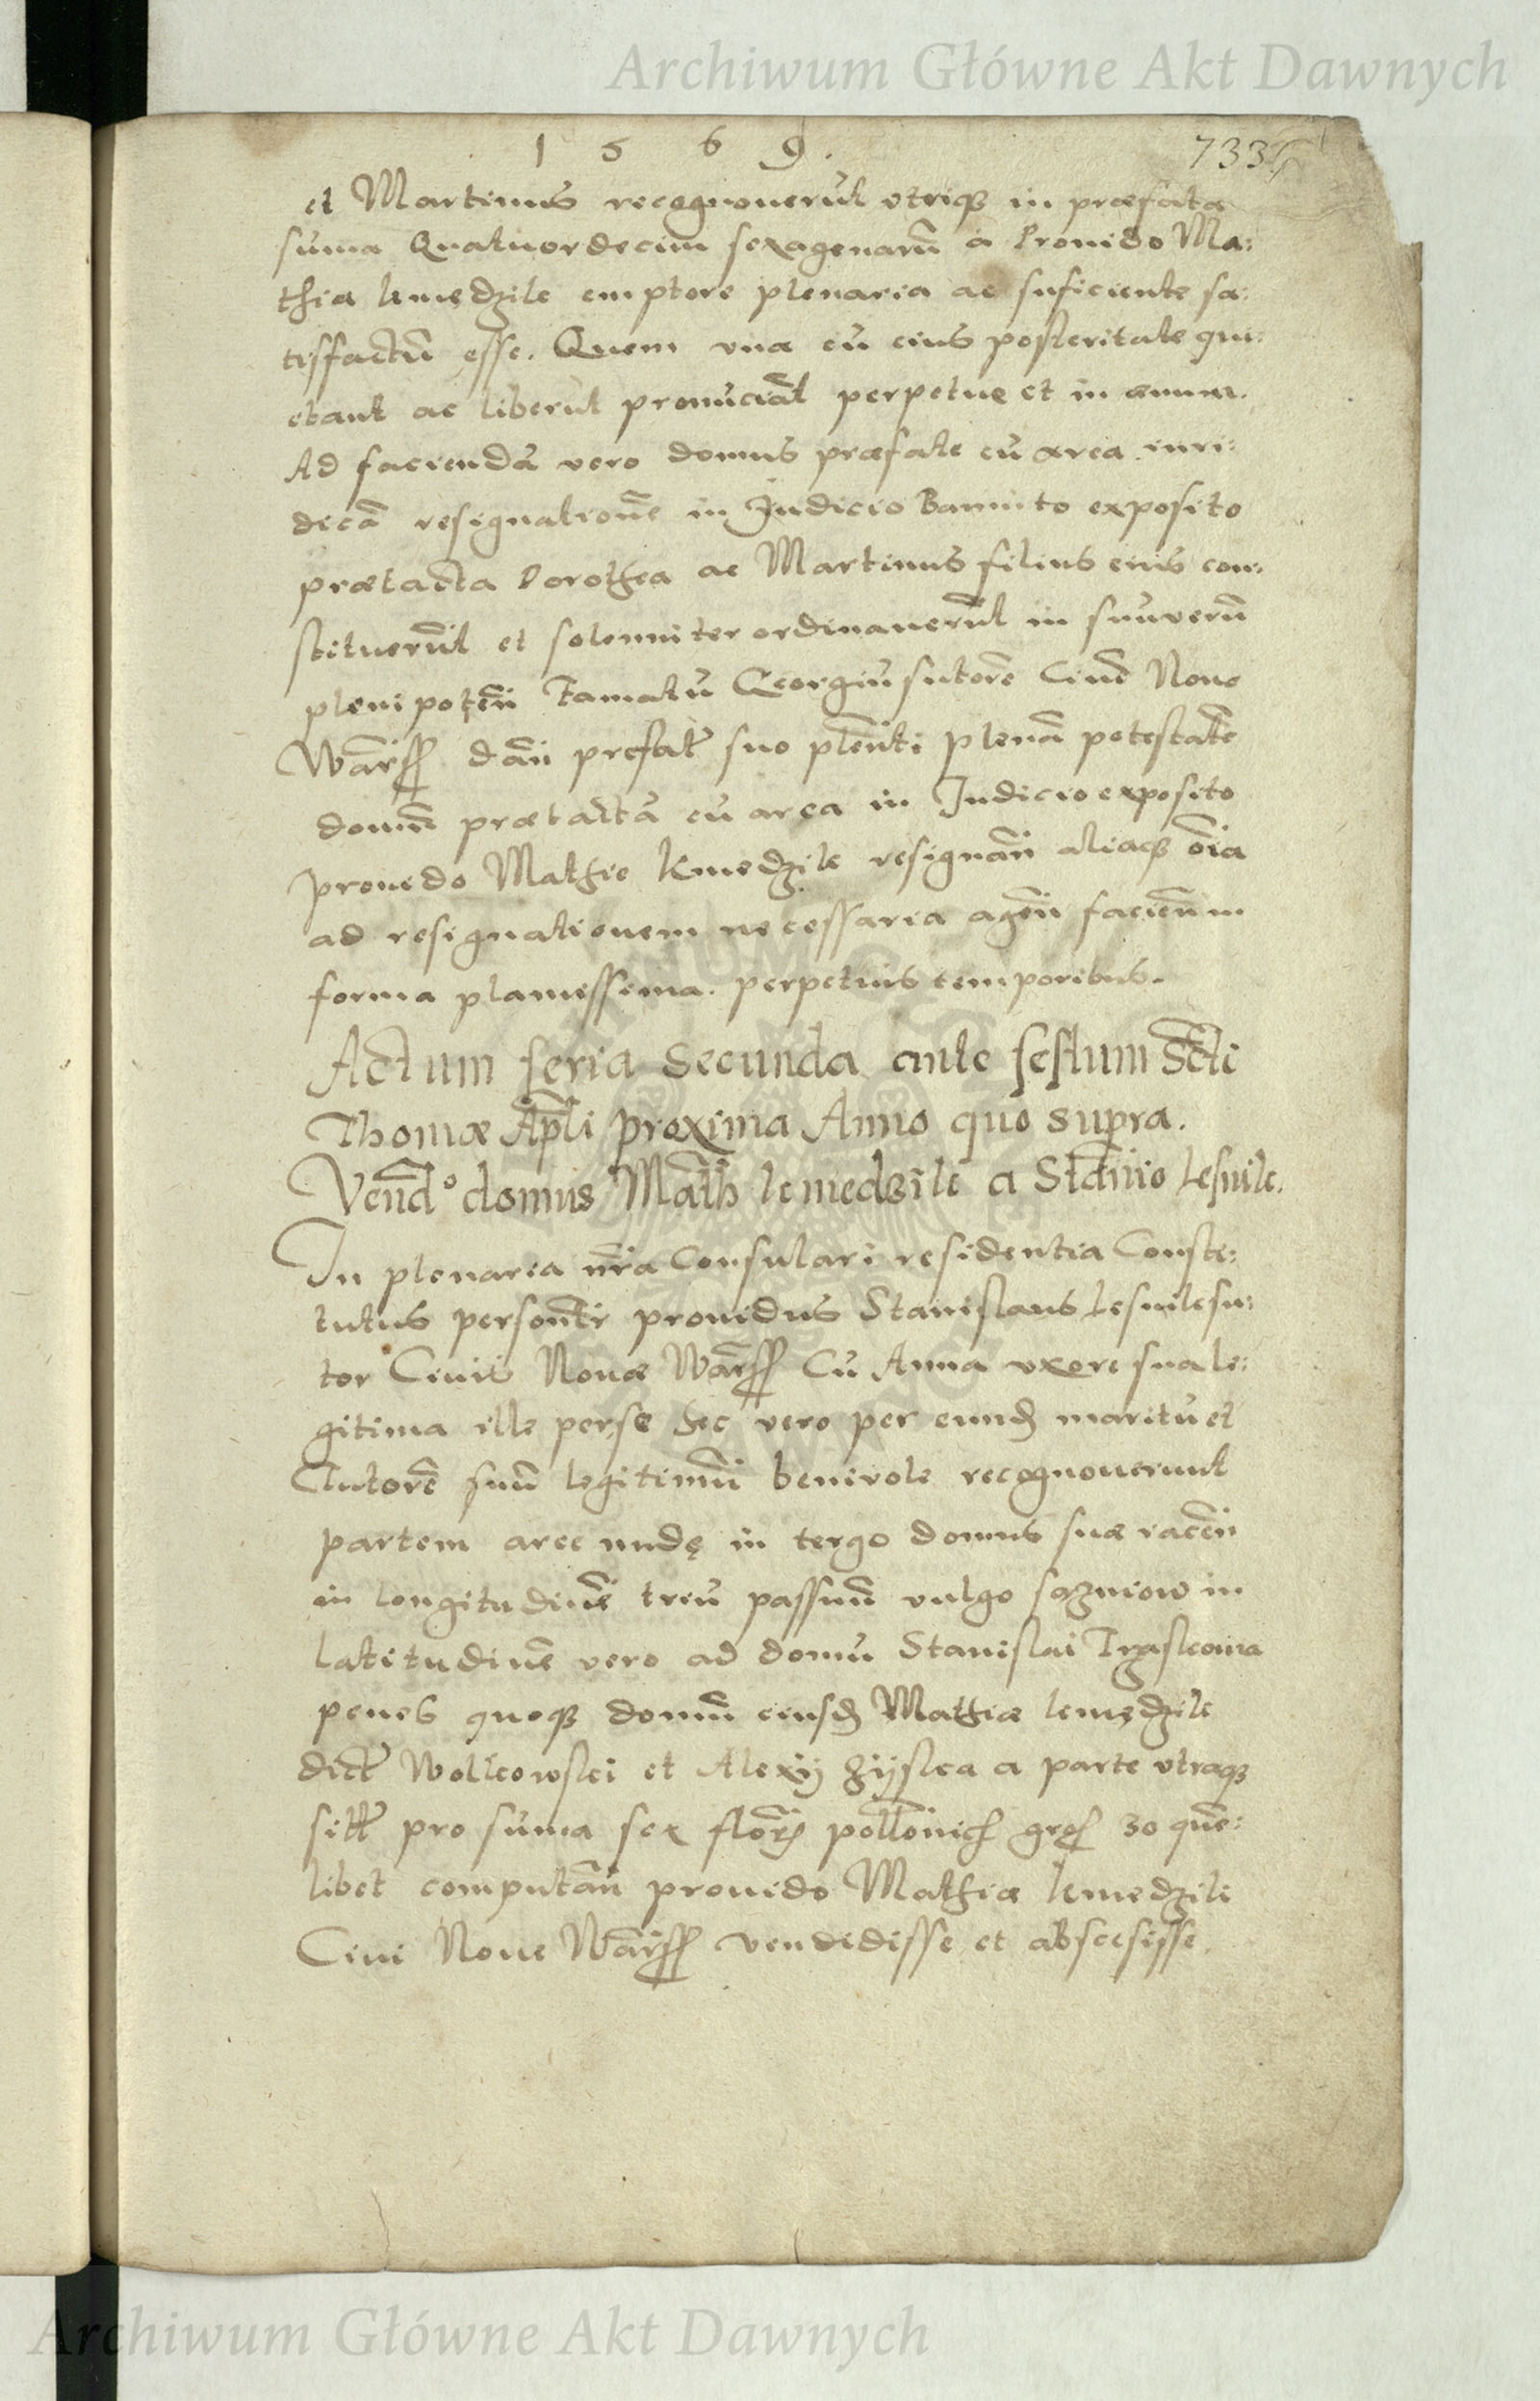 Archiwum Główne Akt Dawnych
1 5 6 9.
733
et Martinus recognoverūt utriqȝ in præfata
suma Quatuordecim sexagenarū a Provido Ma:
thia kmędzile emptore plenaria ac suficiente sa:
tisfactū esse. Quem una cū eius posteritate qui:
etant ac liberūt pronūciāt perpetue et in ævum.
Ad faciendā vero domus præfate cū area iuri:
decā resignationē in Judicio Bannito exposito
prætacta Dorothea ac Martinus filius eius con:
stituerūt et solenniter ordinaverūt in suū verū
plenipotēn Famatū Georgiū sutorē Civē Nove
Warss dān prefat suo plenti plenā potestatē
domū prætactā cū area in Judicio exposito
provedo Mathie kmedzile resignān aliaqȝ oīa
ad resignationem necessaria agēn faciēn in
forma planissima. perpetuis temporibus.
Actum feria Secunda ante festum Scti
Thomæ Apli proxima Anno quo supra.
Vend° domus Math kmedzile a Stanio Lesnik.
In plenaria nrā Consulari residentia Conste:
tutus persontr providus Stanislaus Lesnik su:
tor Civis Novæ Warss Cū Anna uxore sua le:
gitima ille per se hec vero per eund maritū et
Tutorē suū legitimū benivole recognoverunt
partem aree nudę in tergo domus suæ iacēn
in longitudinē triū passuū vulgo sązniow in
latitudinē vero ad domū Stanislai Trzaskoma
penes quoqȝ domū eiusd Mathiæ kmędzile
dict Wolkowski et Alexij Zijska a parte utraqȝ
sitt pro suma sex flor pollonich gros 30 quē:
libet computān provido Mathiæ kmędzili
Civi Nove Warss vendidisse et abscesisse
Archiwum Główne Akt Dawnych